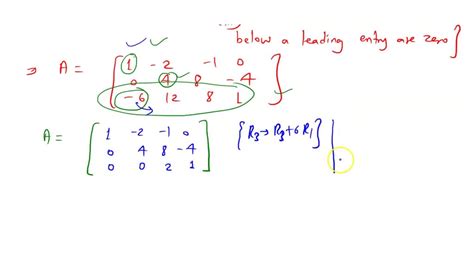 below a leading entry are zero}
⇒ A = [ 1 -2 -1 0
0 4 8 -4
-6 12 8 1 ]
A = [ 1 -2 -1 0
0 4 8 -4
0 0 2 1 ] {R3 → R3 + 6 R1}